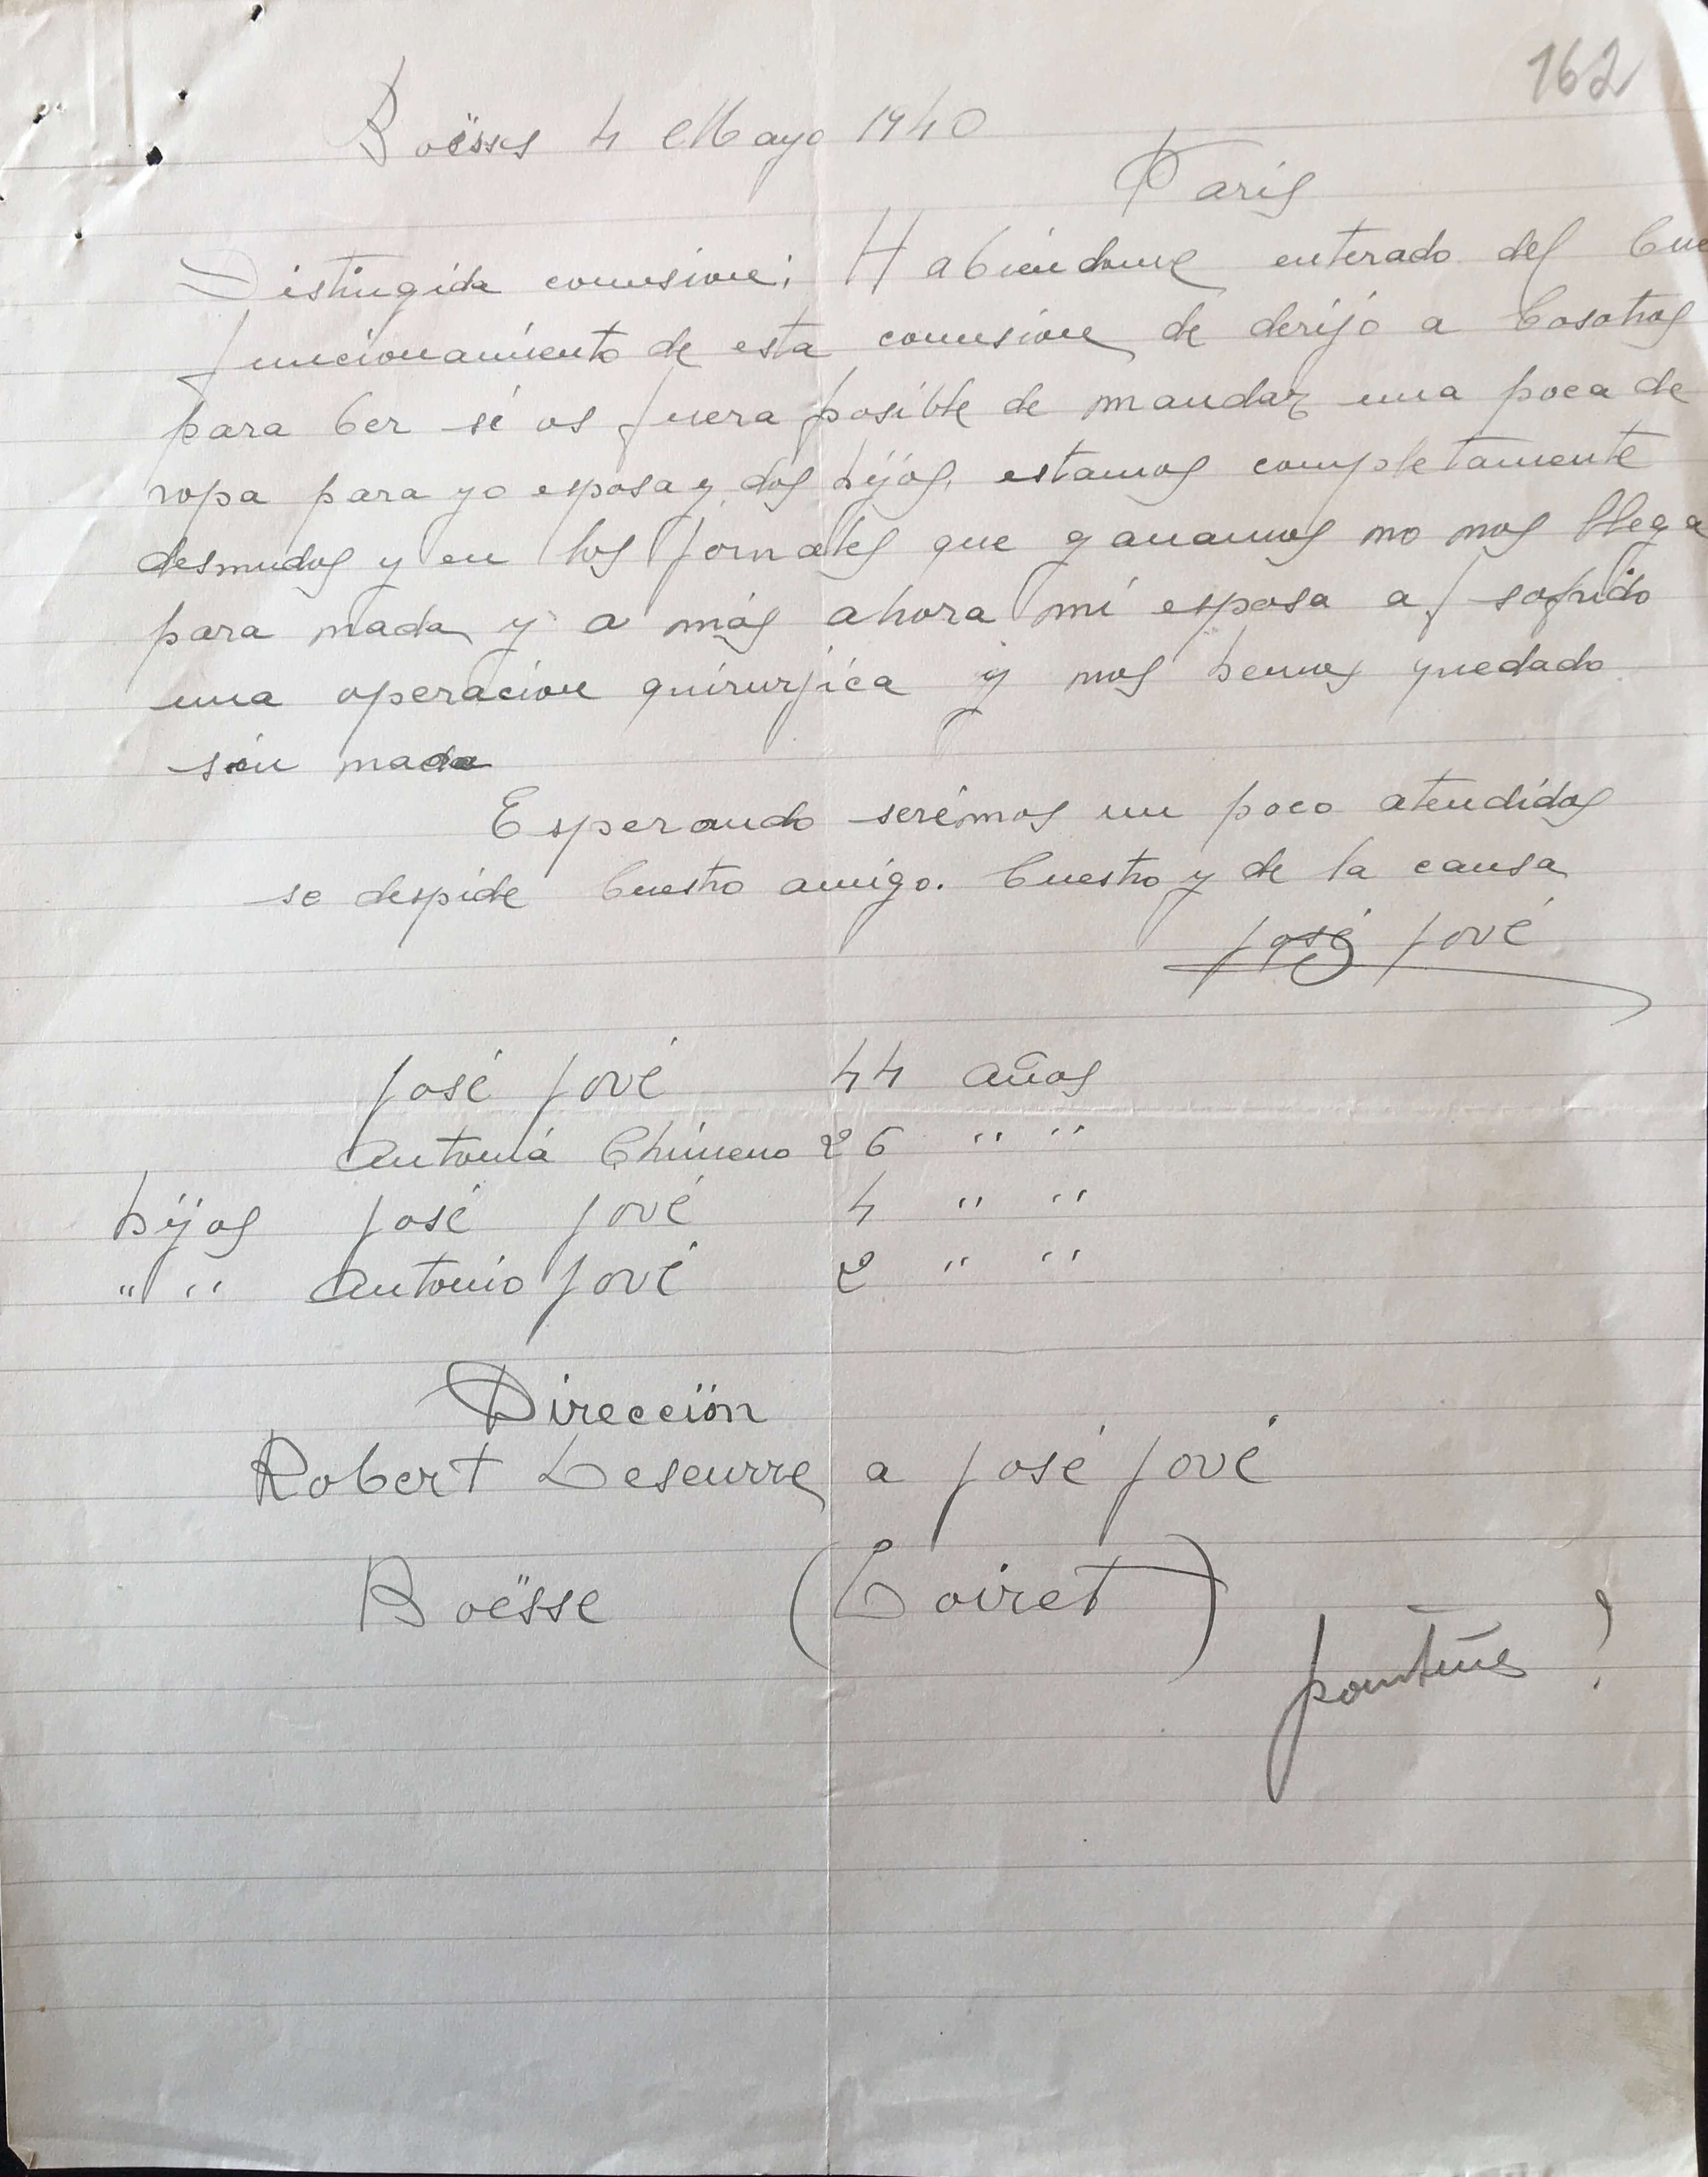 162
Boësses 4 Mayo 1940
Paris
Distingida comisión; Habiendome enterado del bue
funcionamiento de esta comision de derijo a bosotros
para ber sí os fuera posible de mandar una poca de
ropa para yo esposa y dos hijos, estamos completamente
desnudos y en los jornales que ganamos no nos llega
para nada y a más ahora mí esposa a sofrido
una operación quirurjica y nos hemos quedado
sin nada
Esperando serémos un poco atendidos
se despide buestro amigo. buestro y de la causa
José Jové
José Jové 44 años
Antoniá Chimeno 26 " "
hijos José Jové 4 " "
" " Antonio Jové 2 " "
Dirección
Robert Leseurre a José Jové
Boësse (Loiret)